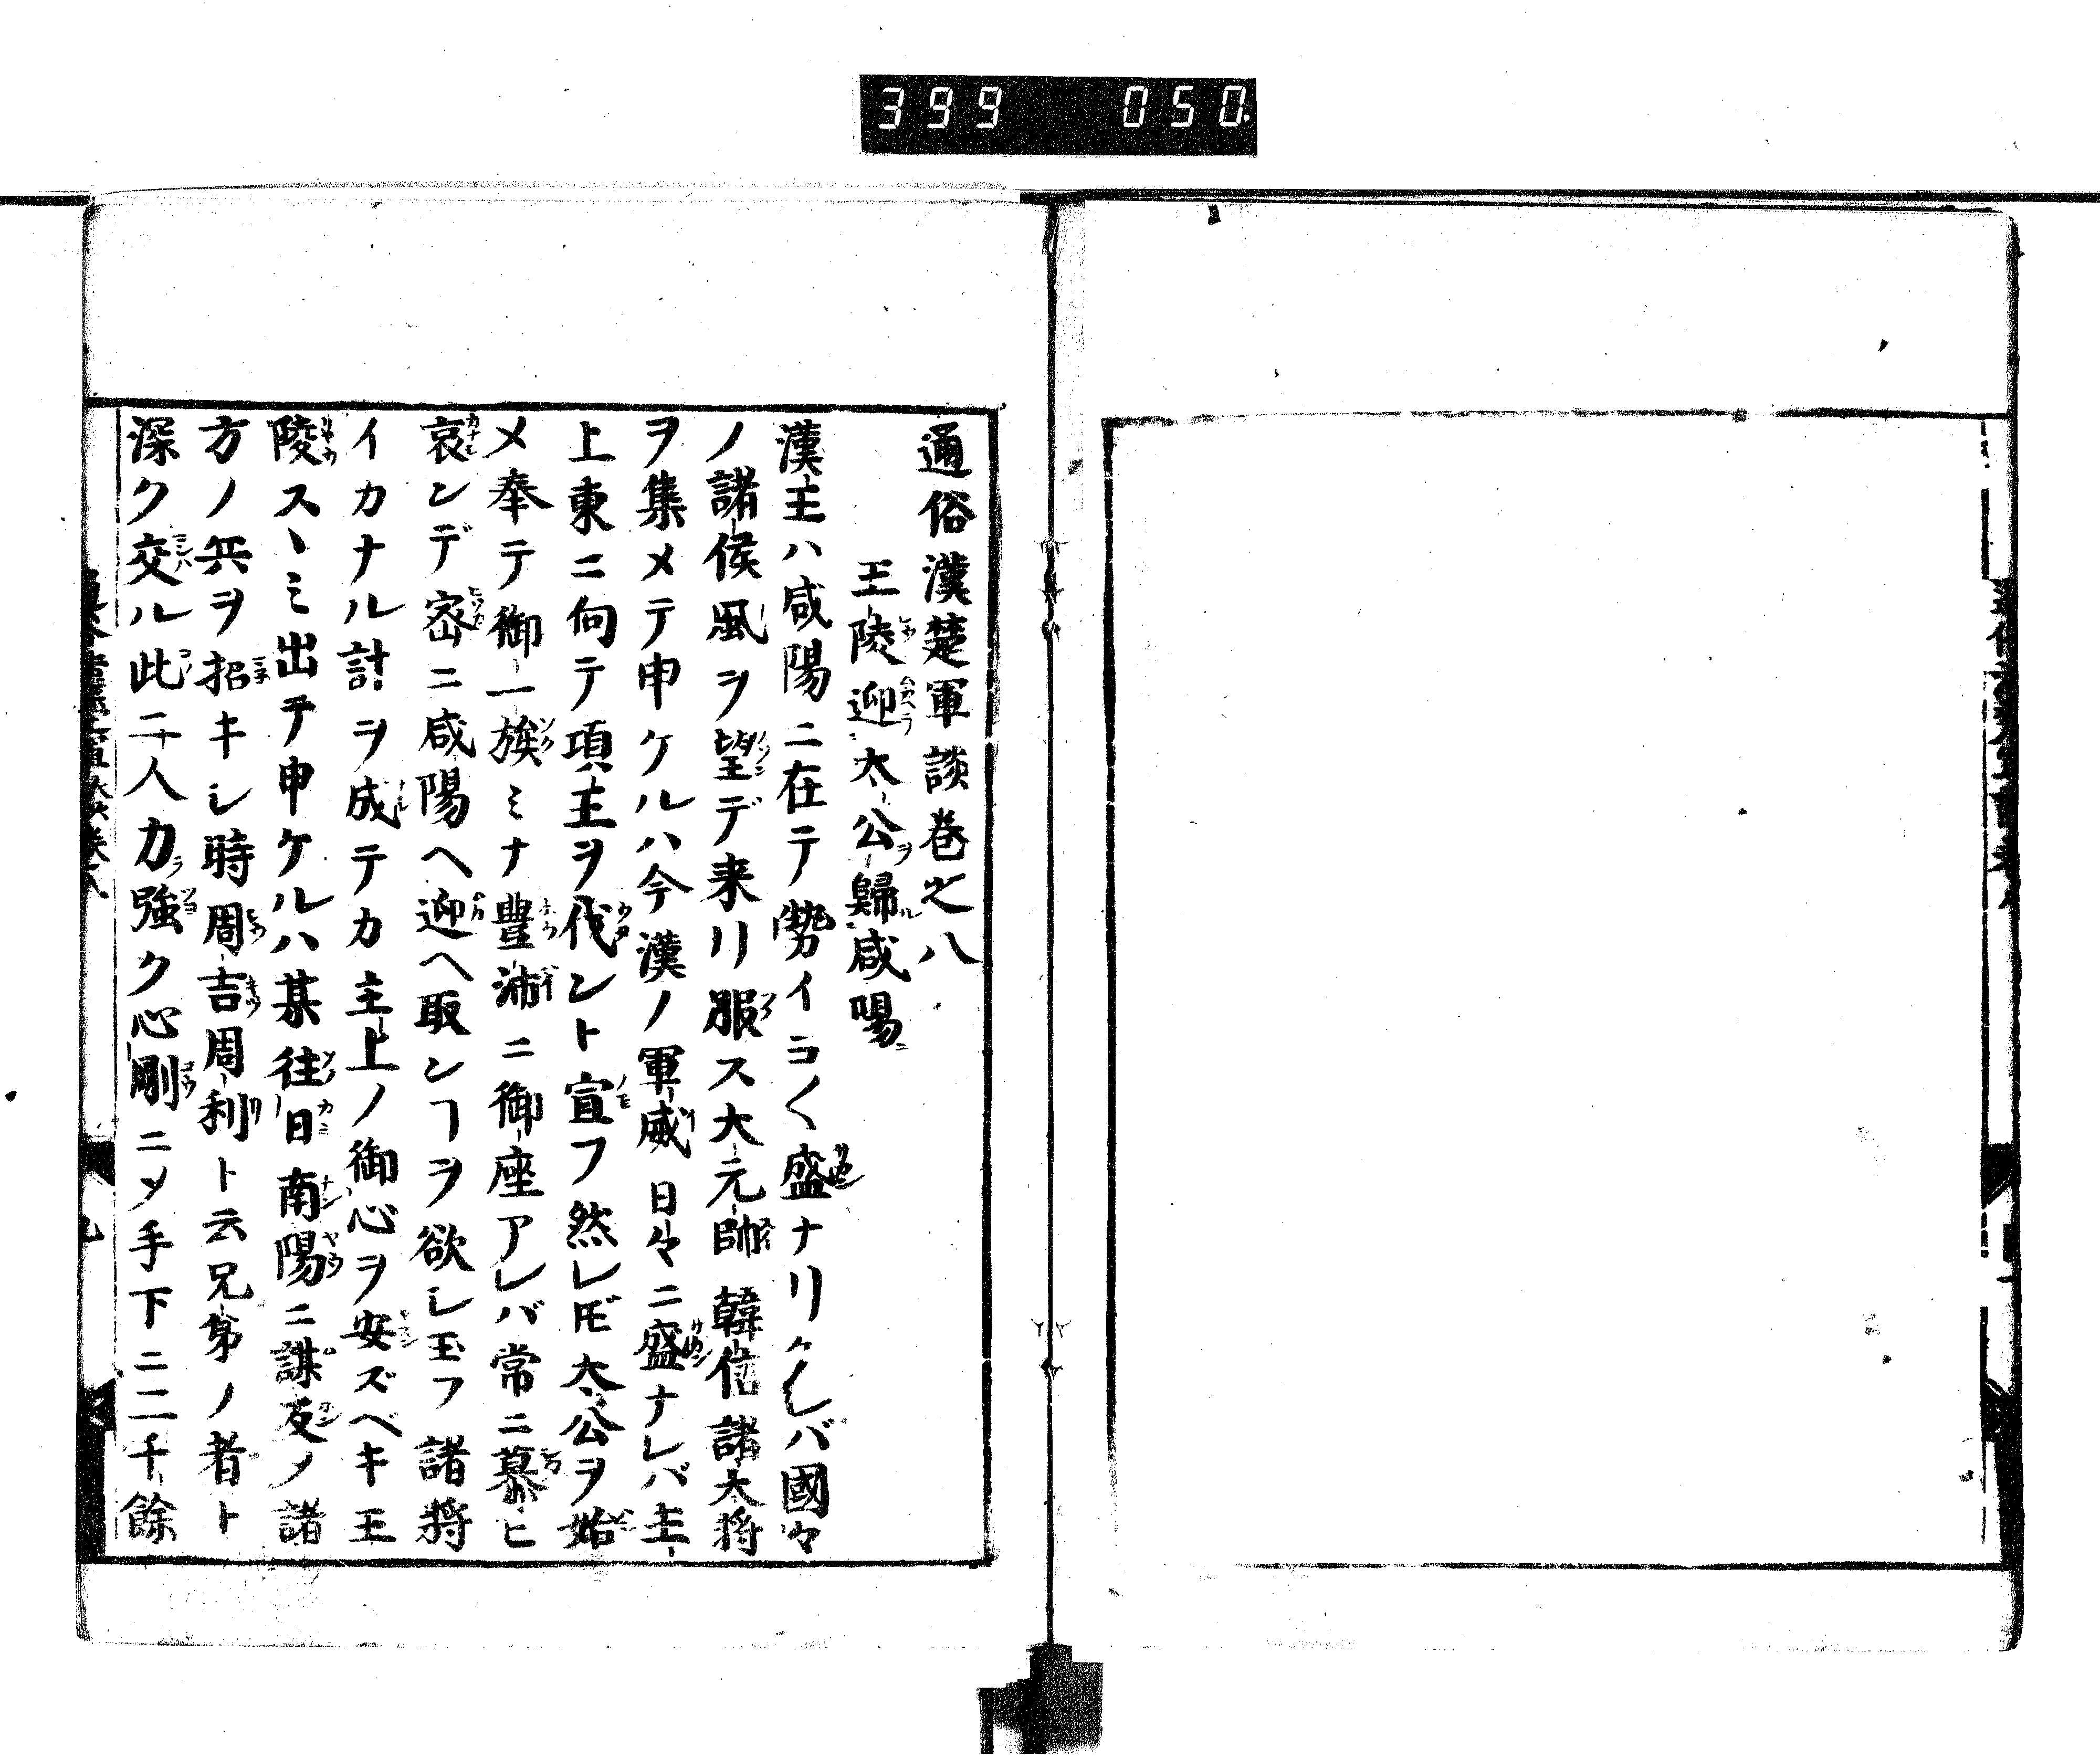 399 050
通俗漢楚軍談巻之八
王陵迎太公歸咸陽
漢王ハ咸陽ニ在テ勢イヨ〱盛ナリケレバ國々
ノ諸侯風ヲ望デ来リ服ス大元帥韓信諸大将
ヲ集メテ申ケルハ今漢ノ軍威日々ニ盛ナレバ主
上東ニ向テ項王ヲ伐ント宣フ然レ𪜈太公ヲ始
メ奉テ御一族ミナ豊沛ニ御座アレバ常ニ慕ヒ
哀ンデ密ニ咸陽ヘ迎ヘ取ンヿヲ欲シ玉フ諸将
イカナル計ヲ成テカ主上ノ御心ヲ安ズベキ王
陵スヽミ出テ申ケルハ某往日南陽ニ謀反ノ諸
方ノ兵ヲ招キシ時周吉周利ト云兄弟ノ者ト
深ク交ル此二人力強ク心剛ニメ手下ニ二千餘